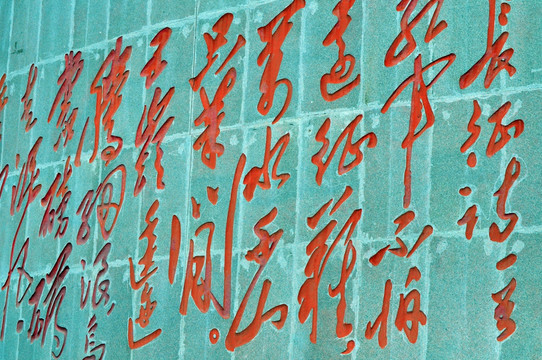 长征诗一首
红军不怕
远征难
万水千山
只等闲。
五岭逶迤
腾细浪乌
蒙磅礴
走泥丸